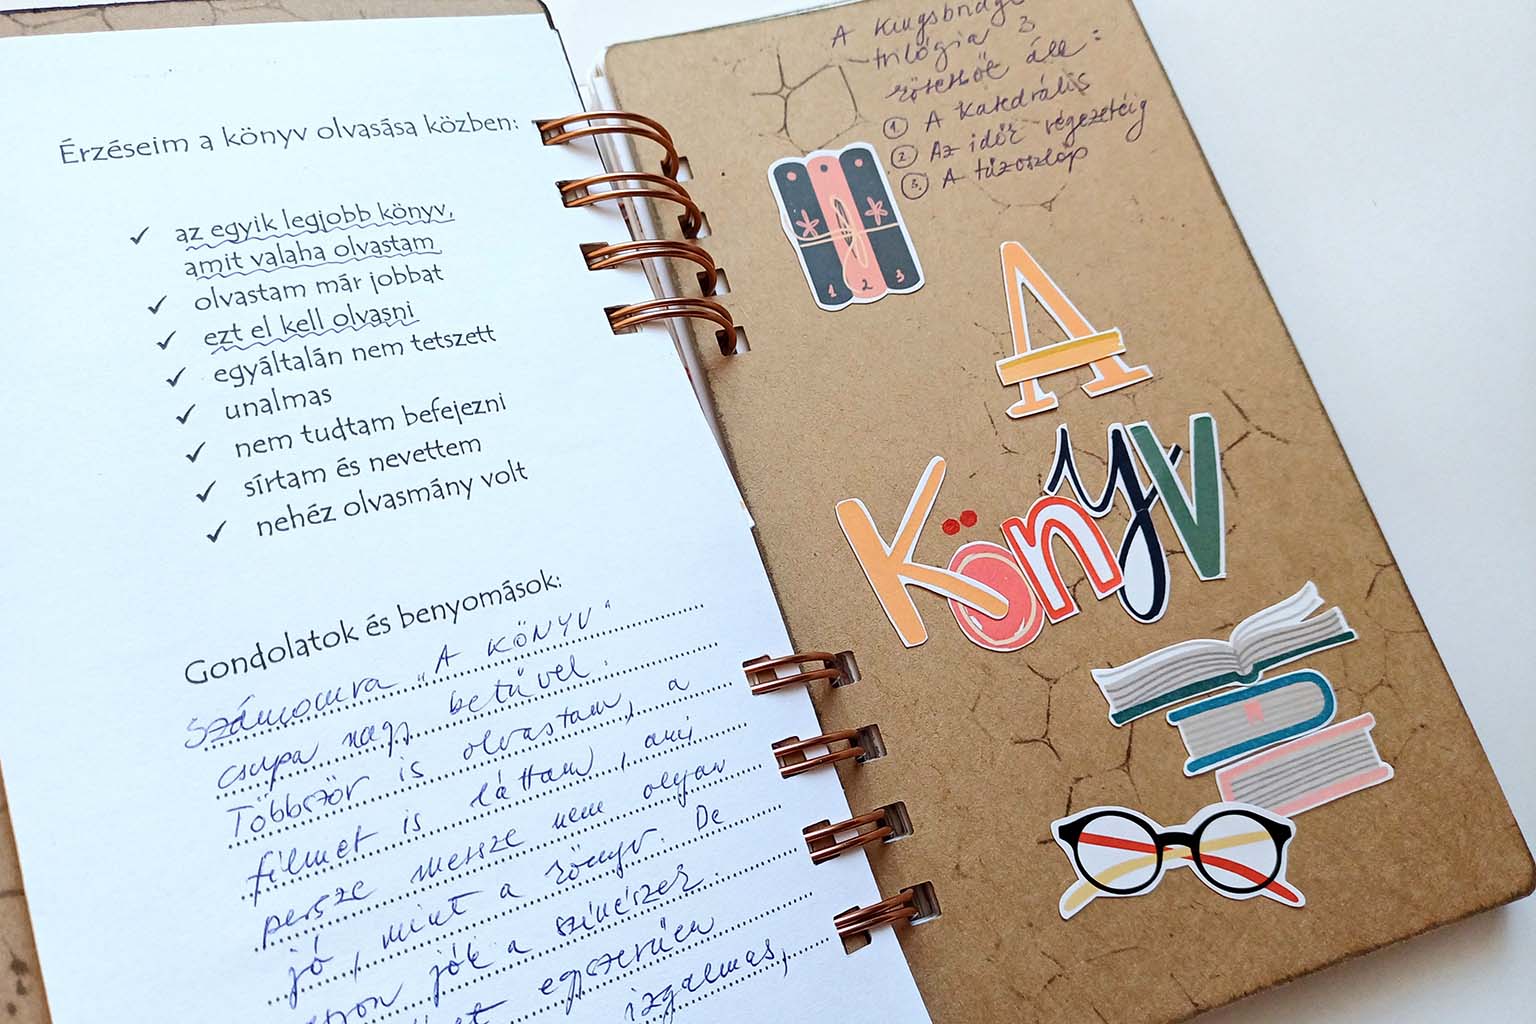 Érzéseim a könyv olvasása közben:
✓ az egyik legjobb könyv,
amit valaha olvastam
✓ olvastam már jobbat
✓ ezt el kell olvasni
✓ egyáltalán nem tetszett
✓ unalmas
✓ nem tudtam befejezni
✓ sírtam és nevettem
✓ nehéz olvasmány volt
Gondolatok és benyomások:
Számomra „A KÖNYV"
csupa nagy betűvel.
Többször is olvastam, a
filmet is láttam, ami
persze messze nem olyan
jó, mint a könyv. De
jók a színészek.
egyszerűen
izgalmas,
A Kingsbridge
trilógia 3
kötetből áll:
1. A katedrális
2. Az idők végezetéig
3. A tűzoszlop
1 2 3
A
Könyv